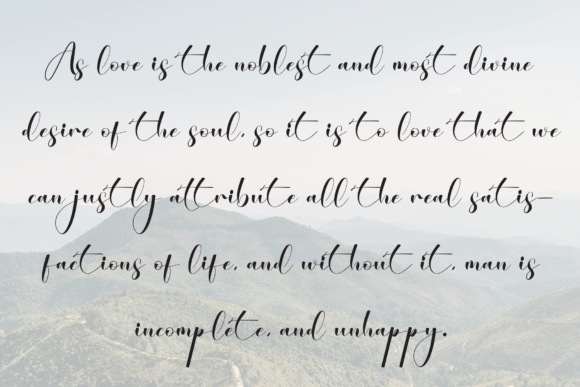 As love is the noblest and most divine
desire of the soul, so it is to love that we
can justly attribute all the real satis-
factions of life, and without it, man is
incomplete, and unhappy.